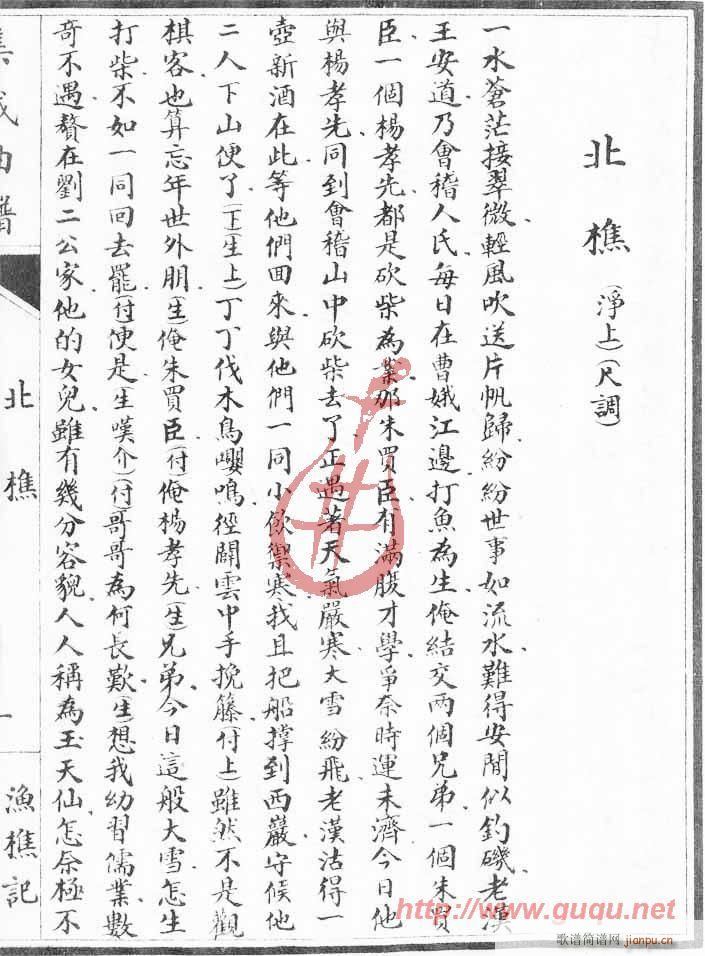 北樵（淨上）（尺調）
一水蒼茫接翠微、輕風吹送片帆歸、紛紛世事如流水、難得安閒似釣磯、老漢
王安道乃會稽人氏、每日在曹娥江邊、打魚為生、俺結交兩個兄弟、一個朱買
臣、一個楊孝先、都是砍柴為業、那朱買臣、有滿腹才學、爭奈時運未濟、今日他
與楊孝先、同到會稽山中砍柴去了、正遇著天氣嚴寒、大雪紛飛、老漢沽得一
壺新酒在此、等他們回來、與他們一同小飲禦寒、我且把船撐到西巖、守候他
二人下山便了、（下）（生上）丁丁伐木鳥嚶鳴、徑闢雲中手挽籐、（付上）雖然不是觀
棋客、也算忘年世外朋、（生）俺朱買臣、（付）俺楊孝先、（生）兄弟、今日這般大雪、怎生
打柴、不如一同回去罷、（付）便是、（生嘆介）（付）哥哥為何長歎、（生）想我幼習儒業、數
奇不遇、贅在劉二公家、他的女兒、雖有幾分容貌、人人稱為玉天仙、怎奈極不
集成曲譜
北樵
一
漁樵記
http://www.guqu.net
歌谱简谱网 jianpu.cn